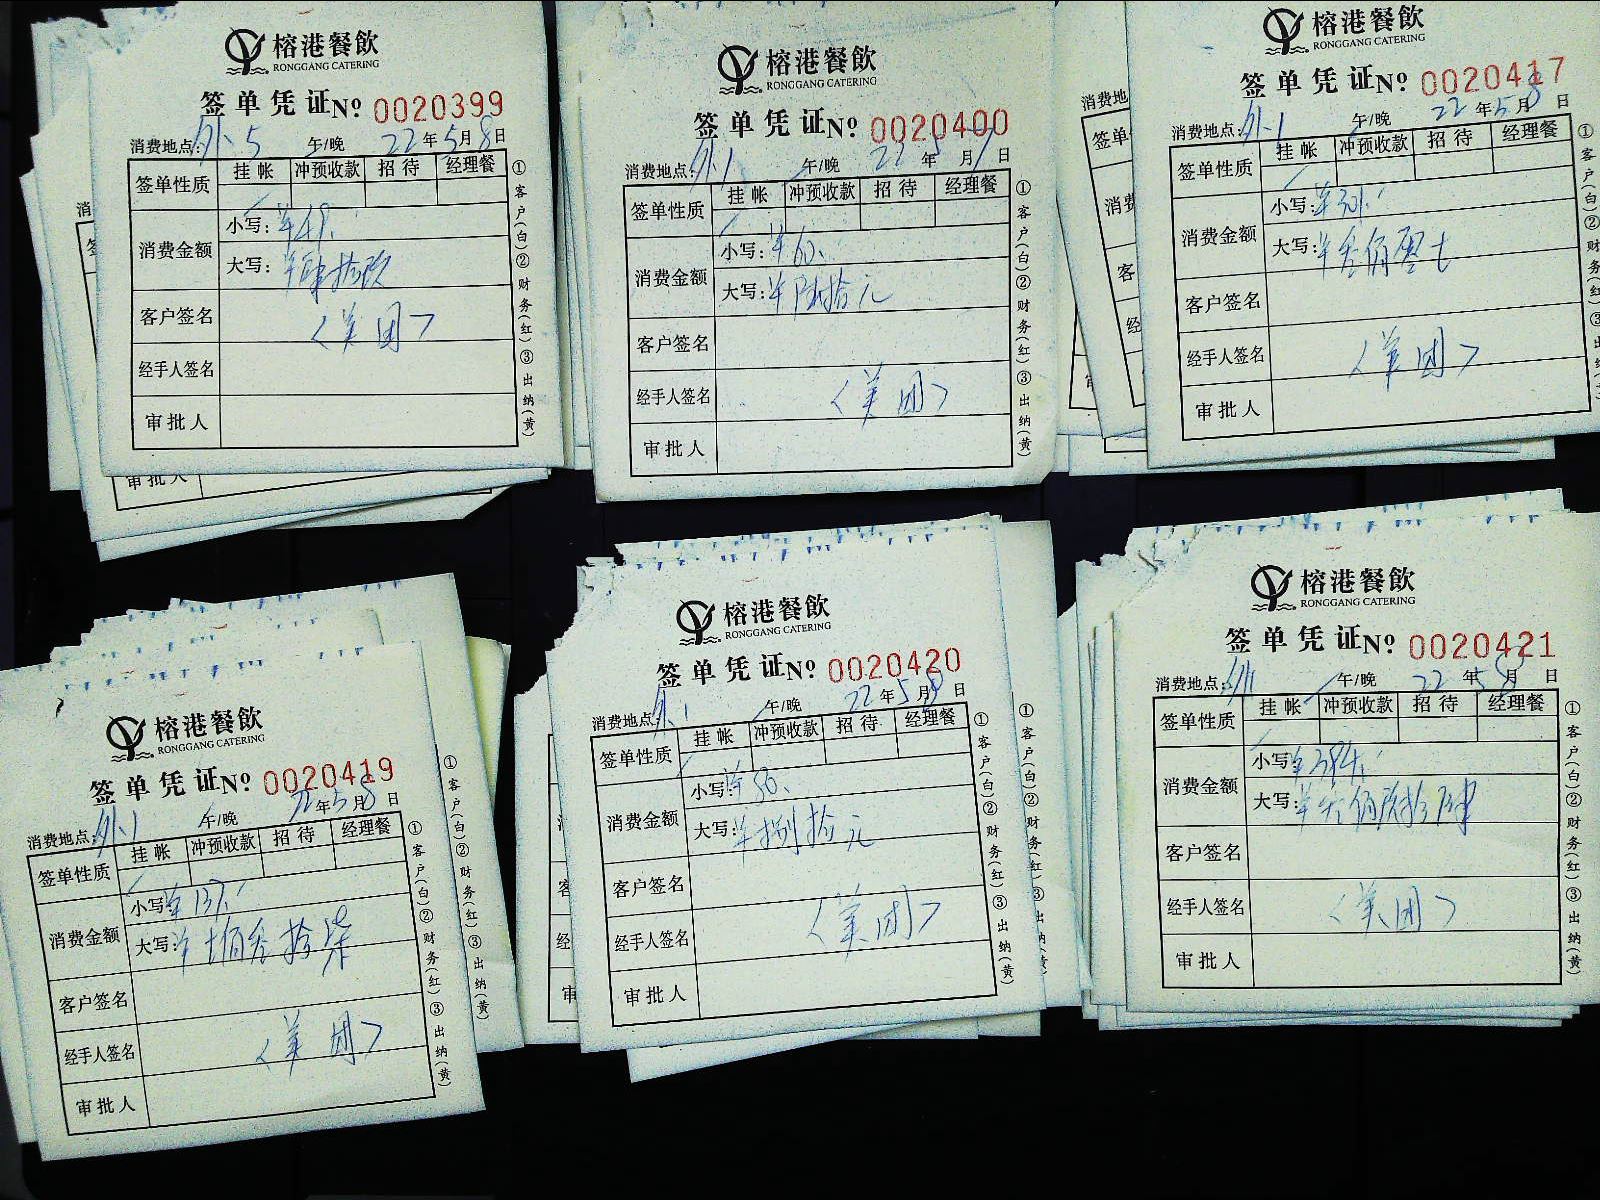 榕港餐飲
RONGGANG CATERING
签单凭证№ 0020399
消费地点: 外5 午/晚 22年5月8日
签单性质 挂帐 冲预收款 招待 经理餐
消费金额 小写: ¥49.
大写: ¥肆拾玖
客户签名 〈美团〉
经手人签名
审批人
①客户(白)②财务(红)③出纳(黄)
审批人
榕港餐飲
RONGGANG CATERING
签单凭证№ 0020400
消费地点: 外1 午/晚 22年5月7日
签单性质 挂帐 冲预收款 招待 经理餐
消费金额 小写: ¥60.
大写: ¥陆拾元
客户签名
经手人签名 〈美团〉
审批人
①客户(白)②财务(红)③出纳(黄)
消费地
签单
消费
客
经
榕港餐飲
RONGGANG CATERING
签单凭证№ 0020417
消费地点: 外1 午/晚 22年5月8日
签单性质 挂帐 冲预收款 招待 经理餐
消费金额 小写:
大写:
客户签名
经手人签名 〈美团〉
审批人
①客户(白)②财务(红)③出
榕港餐飲
RONGGANG CATERING
签单凭证№ 0020419
消费地点: 外1 午/晚 22年5月8日
签单性质 挂帐 冲预收款 招待 经理餐
消费金额 小写: ¥137.
大写: ¥壹佰叁拾柒
客户签名
经手人签名 〈美团〉
审批人
①客户(白)②财务(红)③出纳(黄)
①客户(白)②财务(红)③出纳(黄)
榕港餐飲
RONGGANG CATERING
签单凭证№ 0020420
消费地点: 外1 午/晚 22年5月8日
签单性质 挂帐 冲预收款 招待 经理餐
消费金额 小写: ¥80.
大写: ¥捌拾元
客户签名
经手人签名 〈美团〉
审批人
①客户(白)②财务(红)③出纳(黄)
①客户(白)②财务(红)③出纳(黄)
榕港餐飲
RONGGANG CATERING
签单凭证№ 0020421
消费地点: 外11 午/晚 22年5月8日
签单性质 挂帐 冲预收款 招待 经理餐
消费金额 小写: ¥394.
大写: ¥叁佰玖拾肆
客户签名
经手人签名 〈美团〉
审批人
①客户(白)②财务(红)③出纳(黄)